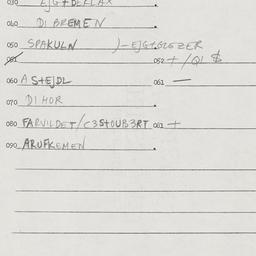 030 EJGTDEKLAX
040 DI BREMEN
050 SPAKULN )-EJGTGLEZER
051 052 + /QL $
060 A STEJDL 061 —
070 DI HOR
080 FARVILDET/C3STOUB3RT 061 +
090 ARUFKEMEN